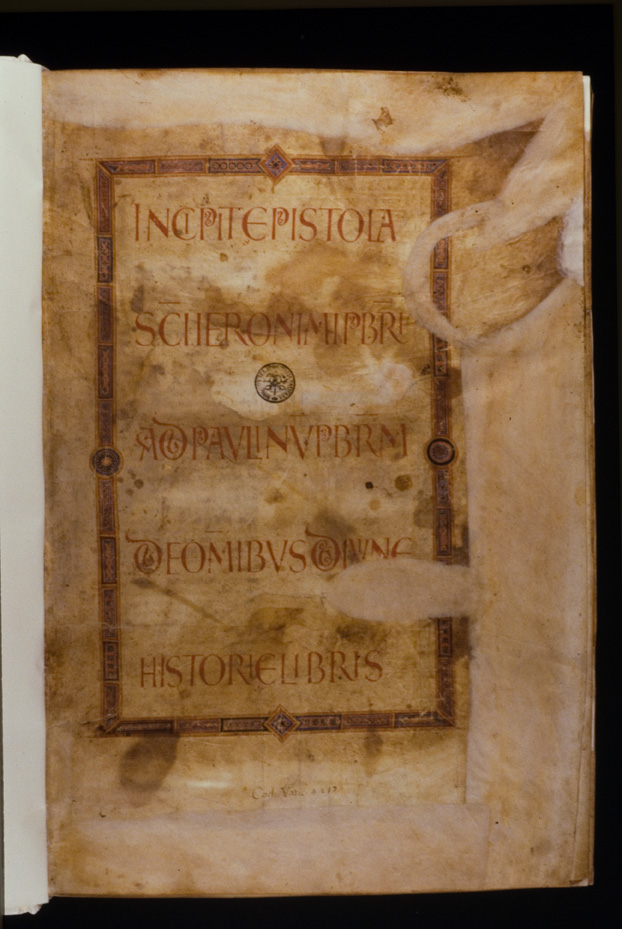 INCIPIT EPISTOLA
S̅C̅I IERONIMI P̅B̅R̅I
AD PAVLINV̅ P̅B̅R̅M
DE O̅MIBVS DIVINE
HISTORIE LIBRIS